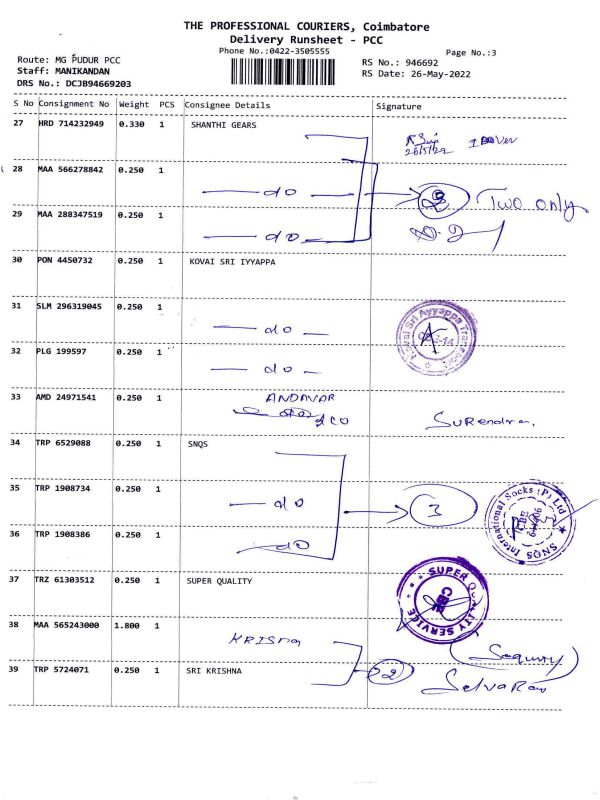 THE PROFESSIONAL COURIERS, Coimbatore
Delivery Runsheet - PCC
Phone No.:0422-3505555
Page No.:3
Route: MG PUDUR PCC
RS No.: 946692
Staff: MANIKANDAN
RS Date: 26-May-2022
DRS No.: DCJB94669203
S No Consignment No Weight PCS Consignee Details Signature
27 HRD 714232949 0.330 1 SHANTHI GEARS
26/5/22
28 MAA 566278842 0.250 1
— do — Two only
29 MAA 288347519 0.250 1
— do —
30 PON 4450732 0.250 1 KOVAI SRI IYYAPPA
31 SLM 296319045 0.250 1
— do — Kovai Sri Ayyappa Transport
32 PLG 199597 0.250 1
— do —
33 AMD 24971541 0.250 1 ANDAVAR
Surendran,
34 TRP 6529088 0.250 1 SNQS
35 TRP 1908734 0.250 1
— do — 3 SNQS International Socks (P) Ltd
36 TRP 1908386 0.250 1
— do —
37 TRZ 61303512 0.250 1 SUPER QUALITY
SUPER QUALITY SERVICE CBE
38 MAA 565243000 1.800 1
KRISHna
39 TRP 5724071 0.250 1 SRI KRISHNA 2